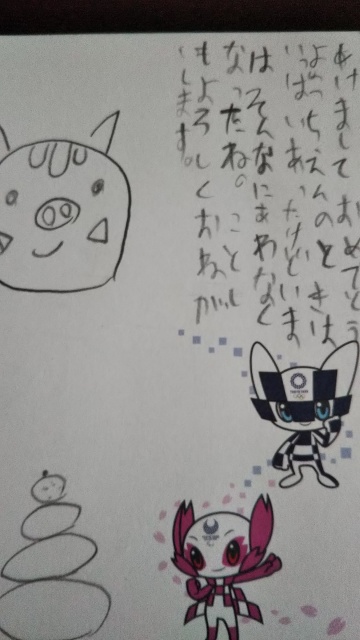 あけまして おめでとう
ようちえんの ときは
いっぱいあったけどいま
は そんなにあわなく
なったね。 ことし
もよろしくおねが
いします。